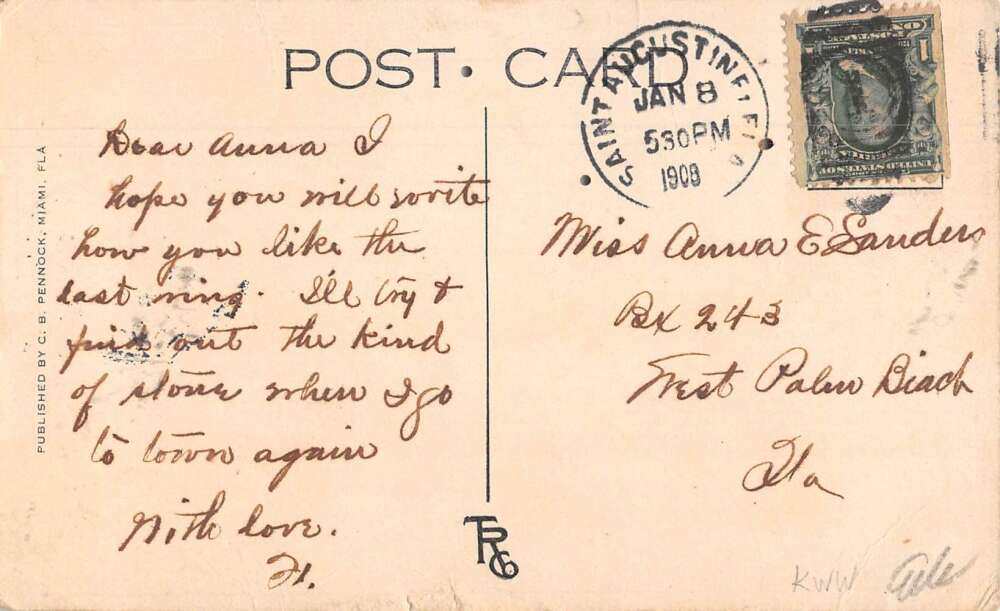 POST CARD
SAINT AUGUSTINE, FLA
JAN 8
530 PM
1909
1
UNITED STATES OF
PUBLISHED BY C. B. PENNOCK, MIAMI, FLA
Dear Anna I
hope you will write
how you like the
last ring. I'll try &
find out the kind
of stone when I go
to town again
With love.
H.
Miss Anna E Sanders
Bx 243
West Palm Beach
Fla
TRCo
KWW